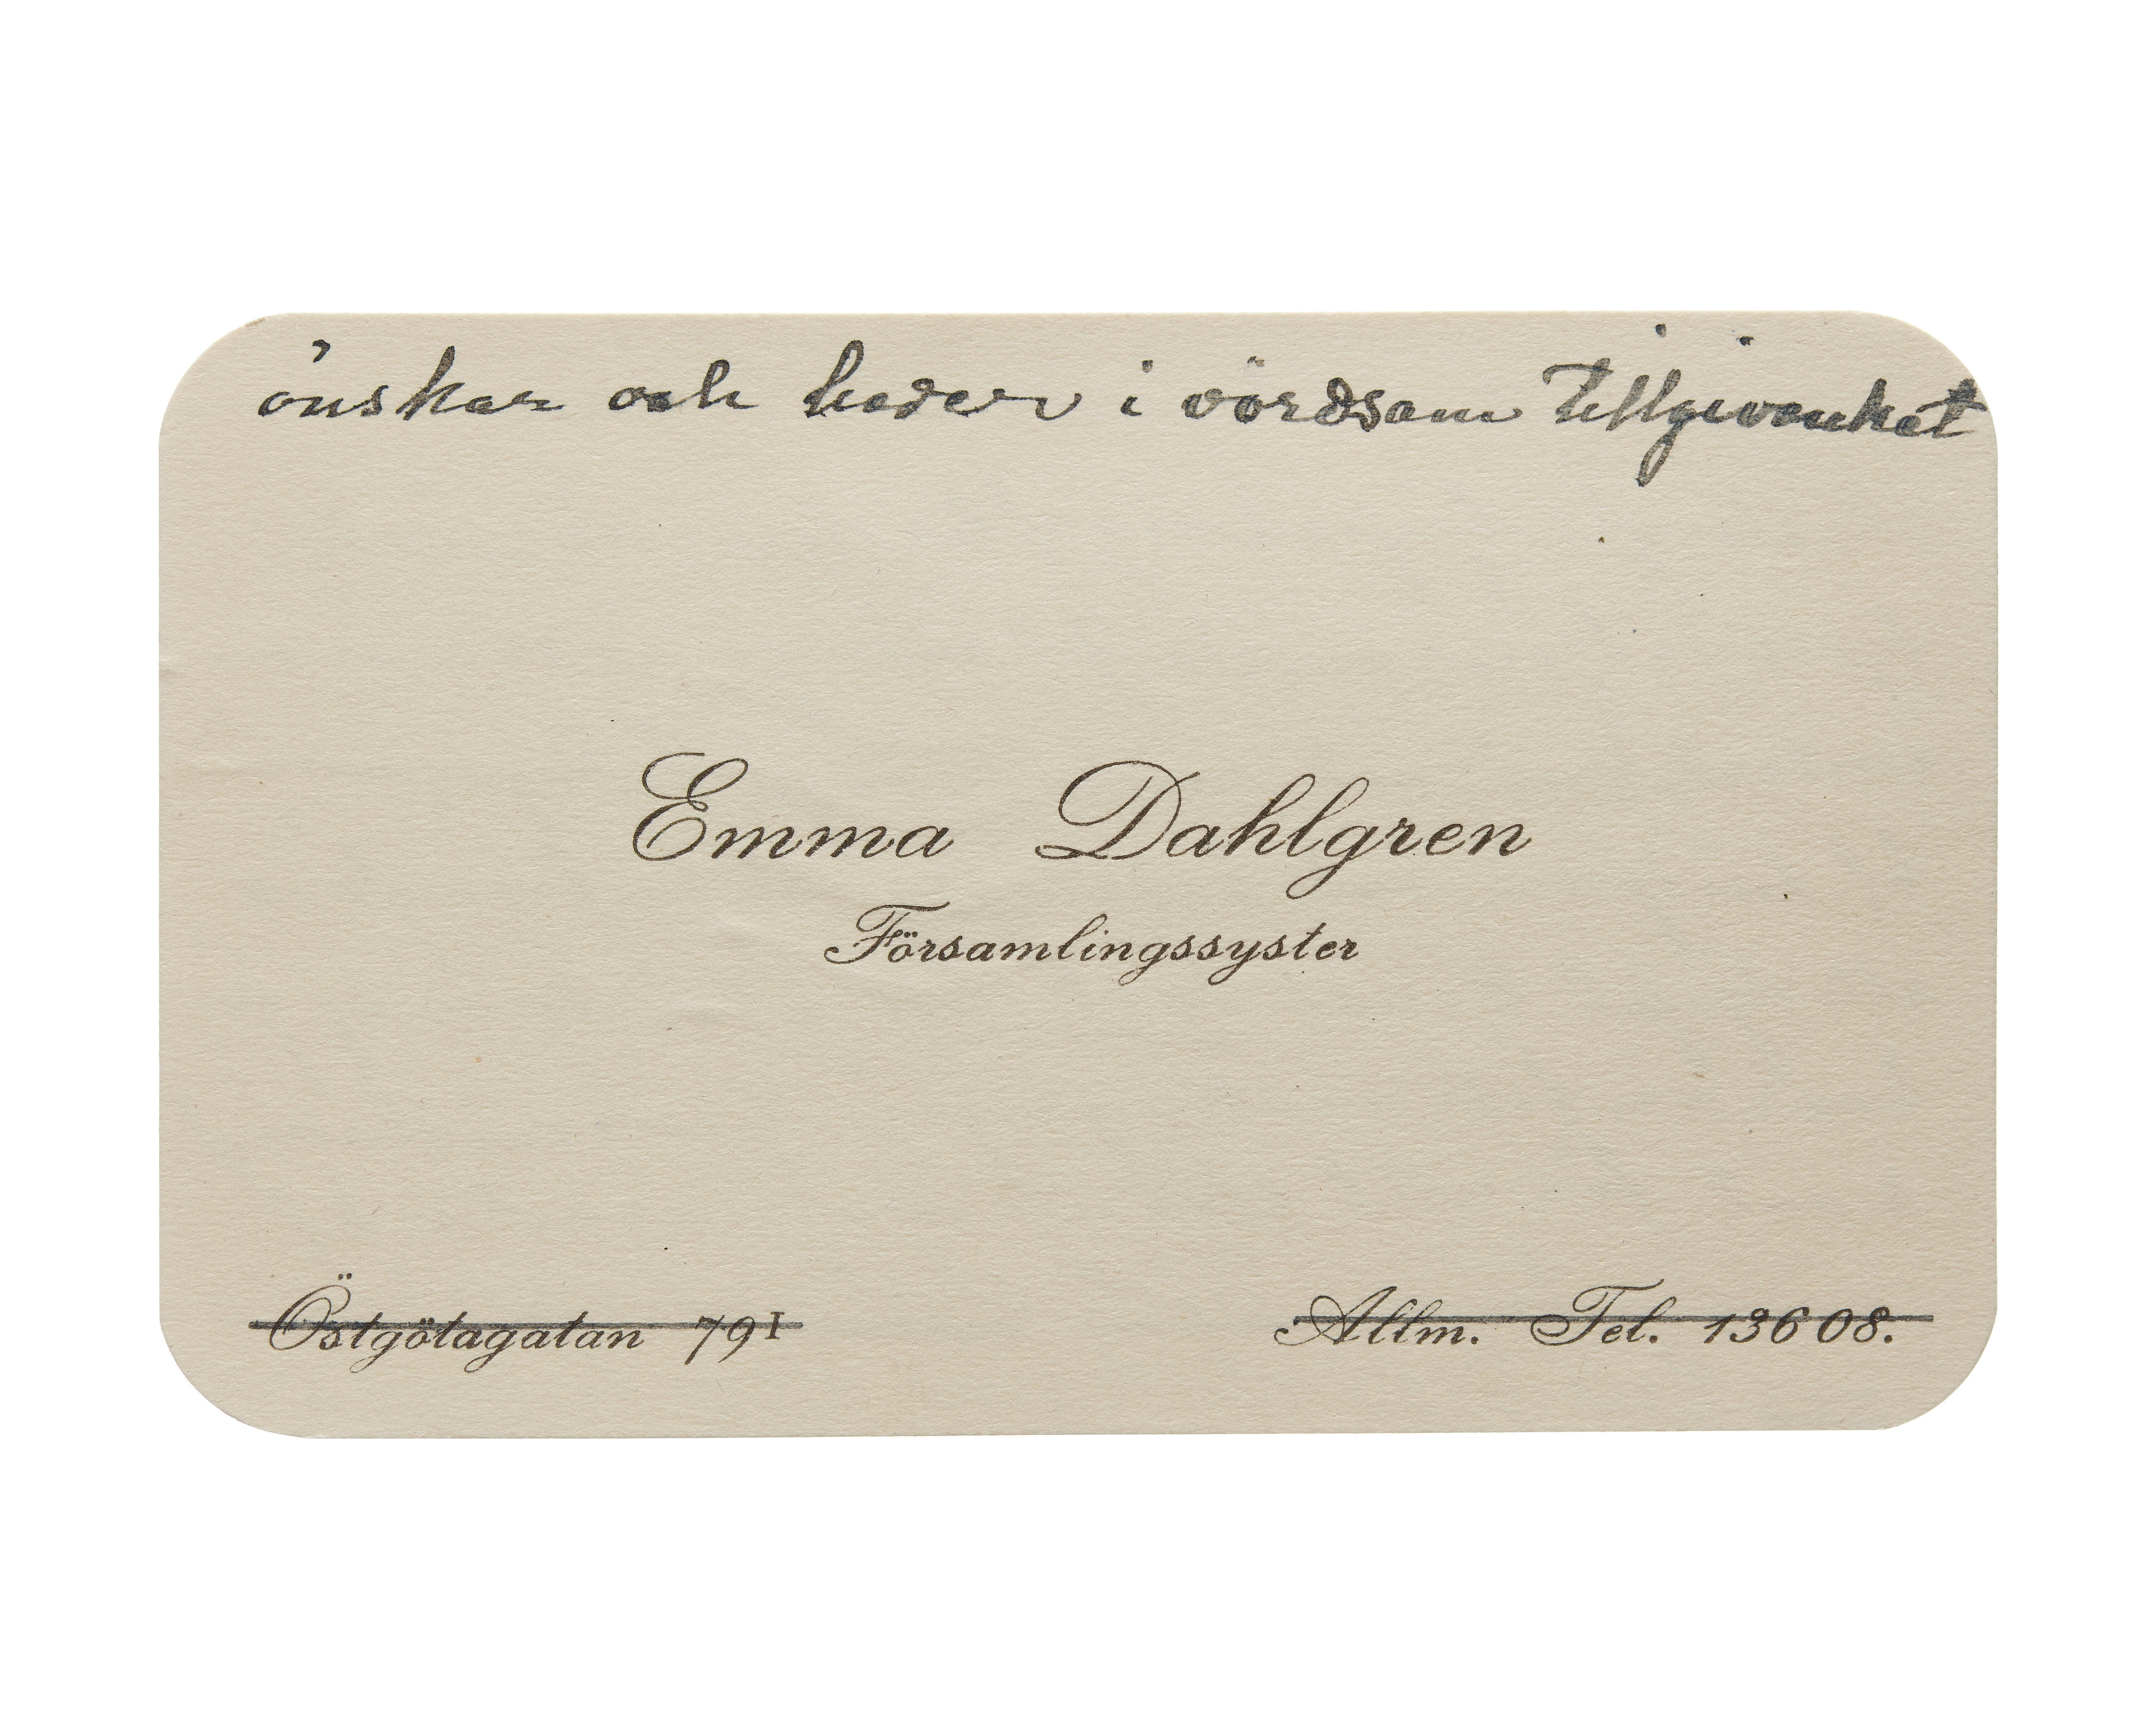 önskar och beder i vördsam tillgivenhet
Emma Dahlgren
Församlingssyster
Östgötagatan 79 I
Allm. Tel. 136 08.